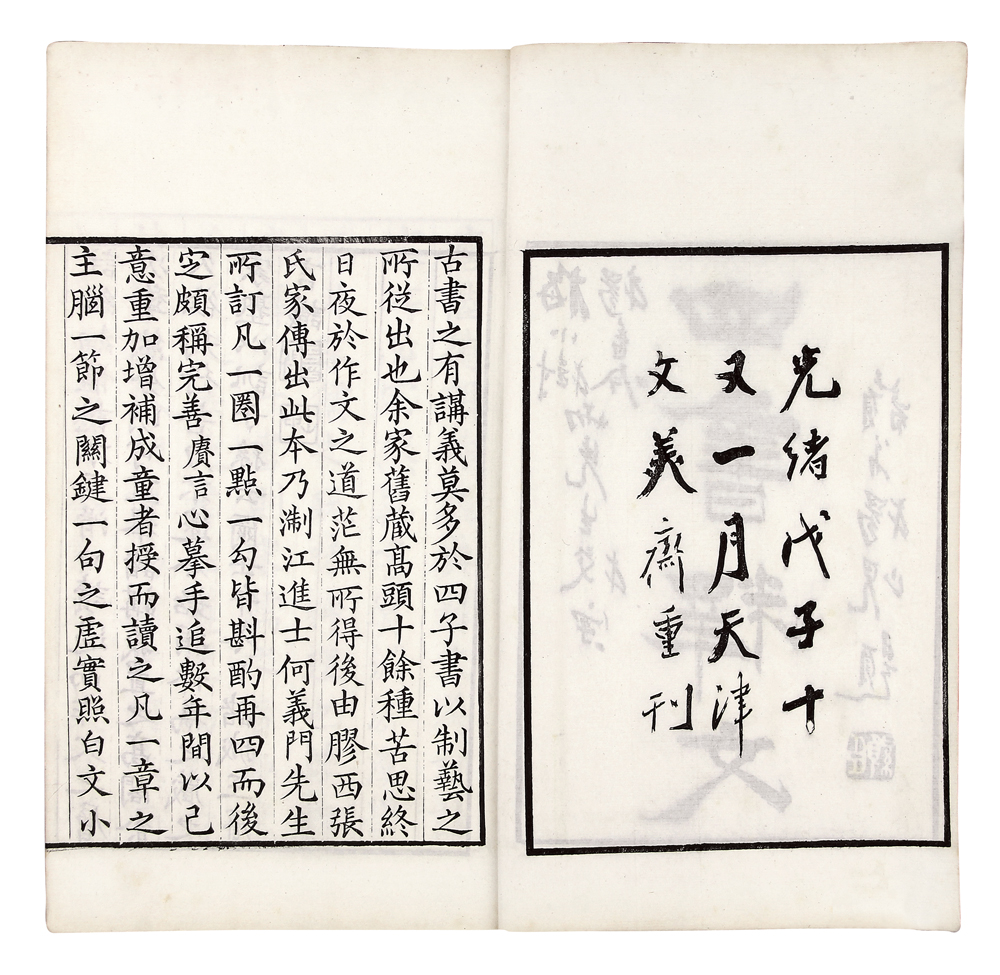 光緒戊子十
又一月天津
文美齋重刊
古書之有講義莫多於四子書以制藝之
所從出也余家舊蔵髙頭十餘種苦思終
日夜於作文之道茫無所得後由膠西張
氏家傳出此本乃淛江進士何義門先生
所訂凡一圈一點一勾皆斟酌再四而後
定頗稱完善賡言心摹手追數年間以己
意重加增補成童者授而讀之凡一章之
主腦一節之關鍵一句之虛實照白文小